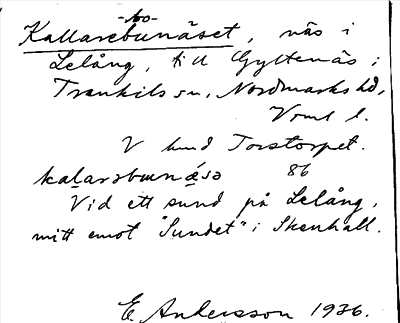 -bo-
Kallarebunäset, näs i
Lelång, till Gyltenäs i
Trankils sn, Nordmarks hd,
Vrml l.
V um Torstorpet.
kalarəbunǽsə 86
Vid ett sund på Lelång,
mitt emot "Sundet" i Skenhall.
E. Andersson 1936.